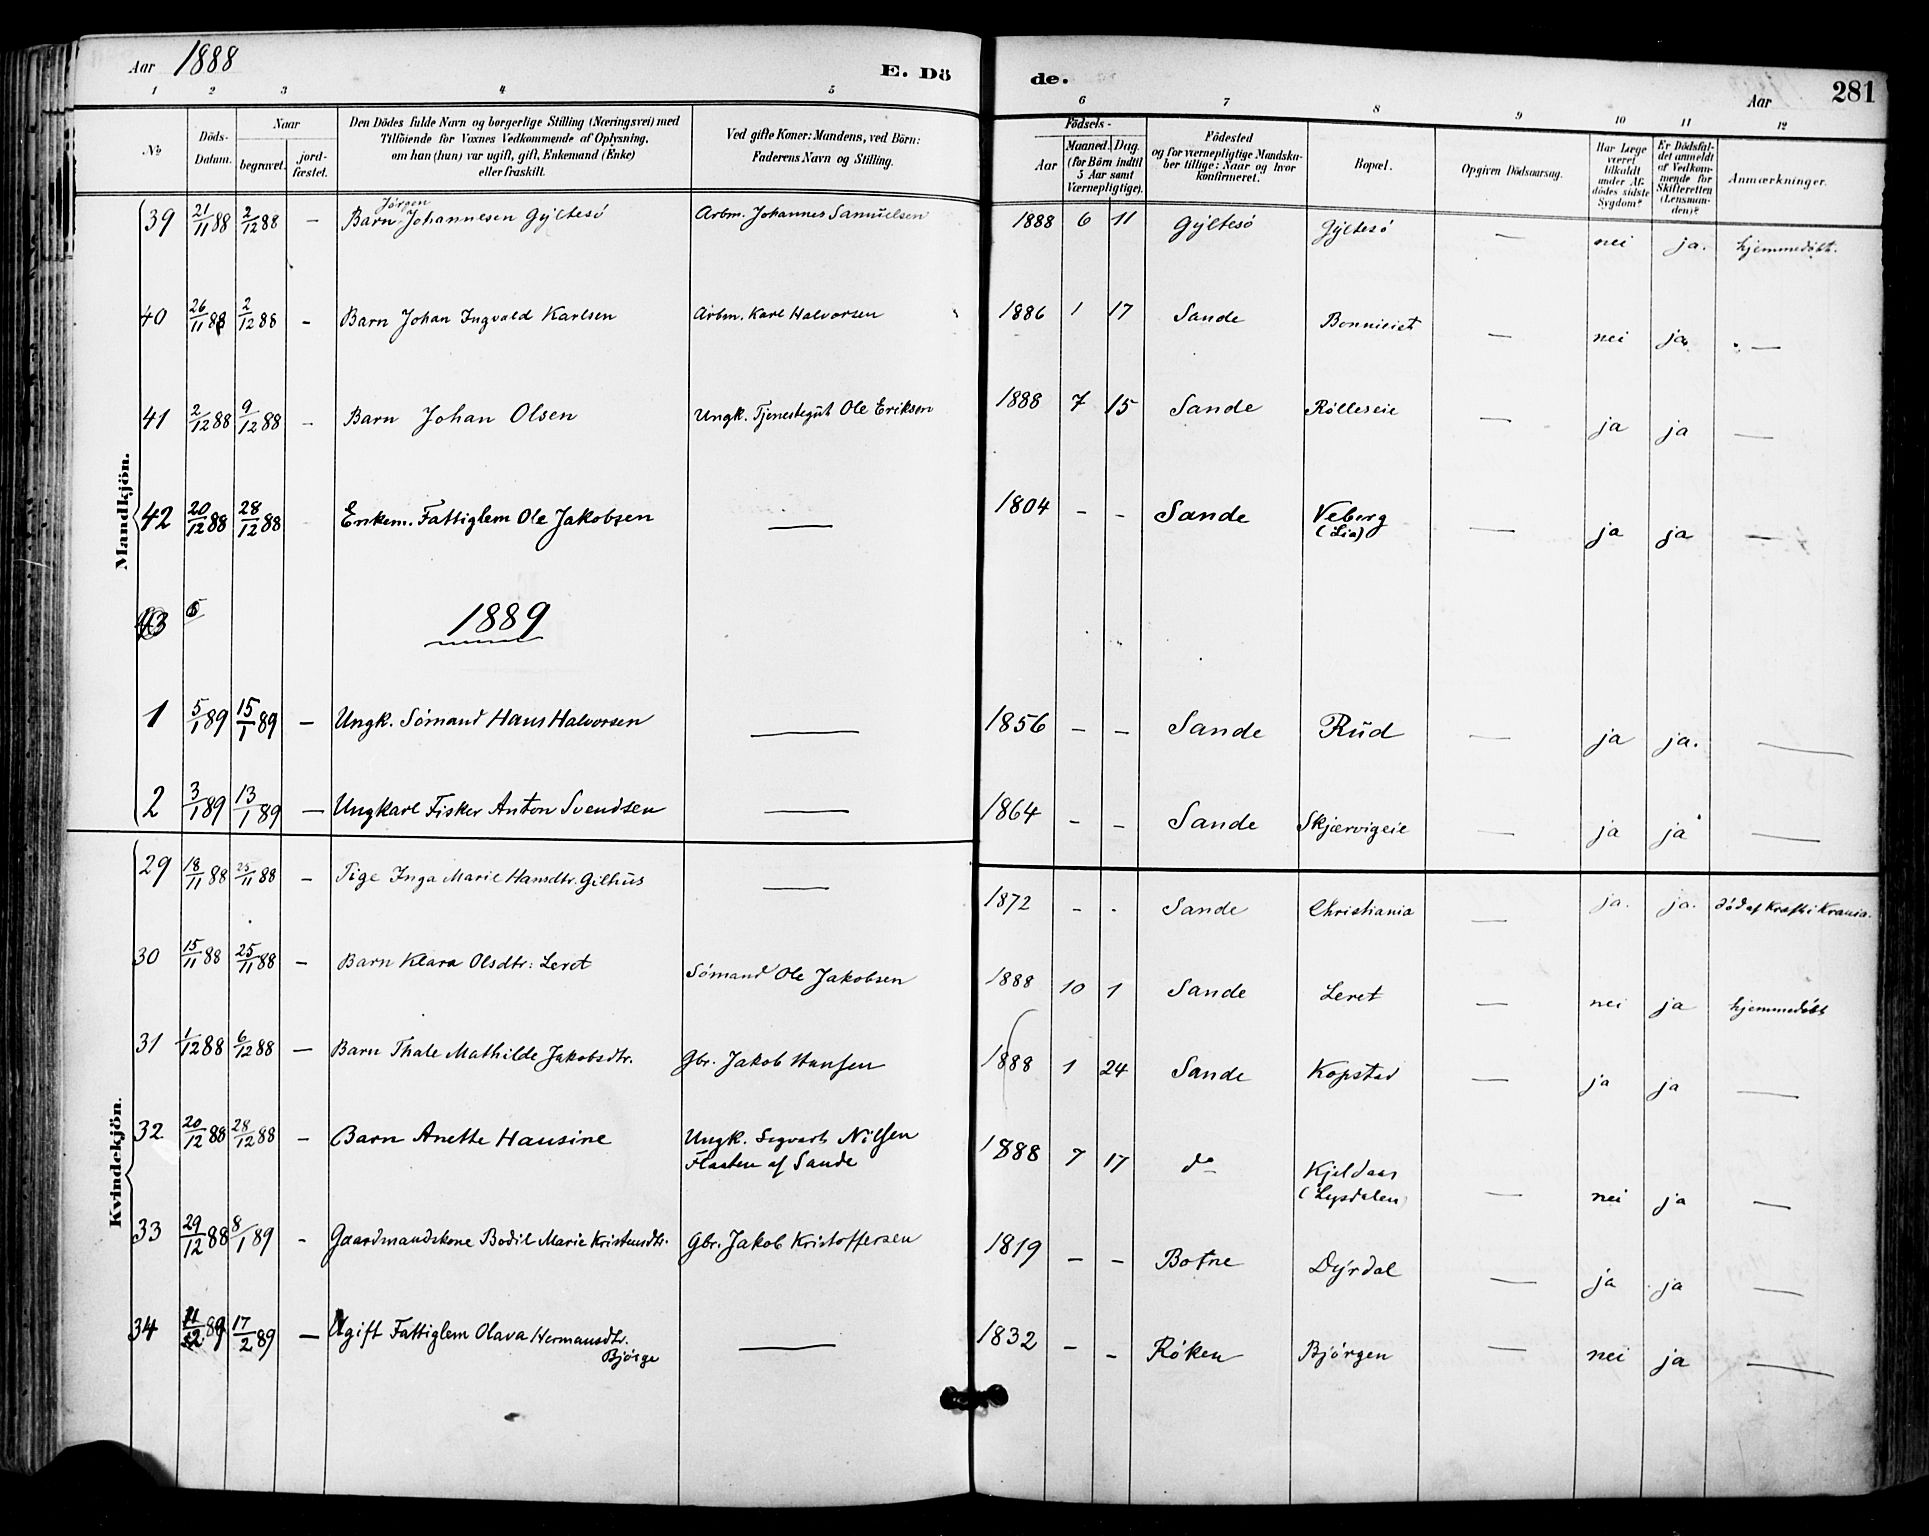 Aar 1888
E. Dö de.
Aar 281
1 2 3 4 5 6 7 8 9 10 11 12
No
Döds-Datum.
Naar
begravet.
jord-fæstet.
Den Dödes fulde Navn og borgerlige Stilling (Næringsvei) med
Tilföiende for Voxnes Vedkommende af Oplysning,
om han (hun) var ugift, gift, Enkemand (Enke)
eller fraskilt.
Ved gifte Koner: Mandens, ved Börn:
Faderens Navn og Stilling.
Födsels-
Aar
Maaned. Dag.
(for Börn indtil
5 Aar samt
Værnepligtige).
Födested
og for værnepligtige Mandska-
ber tillige: Naar og hvor
konfirmeret.
Bopæl.
Opgiven Dödsaarsag.
Har Læge
været
tilkaldt
under Af-
dödes sidste
Sygdom?
Er Dödsfal-
det anmeldt
af Vedkom-
mende for
Skifteretten
(Lensman-
den)?
Anmærkninger.
Mandkjön.
39 21/11 88 2/12 88 — Barn Jörgen Johannesen Gÿltesö Arbm. Johannes Samuelsen 1888 6 11 Gÿltesö Gÿltesö — nei ja. hjemmedöbt.
40 26/11 88 2/12 88 — Barn Johan Ingvald Karlsen Arbm. Karl Halvorsen 1886 1 17 Sande — nei ja. —
41 2/12 88 9/12 88 — Barn Johan Olsen Ungk. Tjenestegut Ole Eriksen 1888 7 15 Sande Rølleseie — ja ja —
42 20/12 88 28/12 88 Enkem. Fattiglem Ole Jakobsen — 1804 - - Sande Veberg (Lia) — ja ja —
43
1889
1 5/1 89 15/1 89 — Ungk. Sömand Hans Halvorsen — 1856 - - Sande Rud — ja ja. —
2 3/1 89 13/1 89 — Ungkarl Fisker Anton Svendsen — 1864 - - Sande Skjærvigeie — ja ja —
Kvindekjön.
29 18/11 88 25/11 88 — Pige Inga Marie Hansdtr. Gilhus — 1872 - - Sande Christiania — ja. ja. död af Kræft i Krania.
30 15/11 88 25/11 88 — Barn Klara Olsdtr: Leret Sömand Ole Jakobsen 1888 10 1 Sande Leret — nei ja hjemmedöbt
31 1/12 88 6/12 88 — Barn Thale Mathilde Jakobsdtr. Gbr. Jakob Hansen 1888 1 24 Sande Kopstad — ja ja —
32 20/12 88 28/12 88 — Barn Anette Hansine Ungk. Sigvart Nilsen
Flaaten af Sande 1888 7 17 do Kjeldaas
(Lysdalen) — nei ja —
33 29/12 88 8/1 89 - Gaardmandskone Bodil Marie Kristensdtr. Gbr. Jakob Kristoffersen 1819 - - Botne Dÿrdal — ja ja —
34 17/2 89 — Ugift Fattiglem Olava Hermansdtr.
Bjørge — 1832 - - Røken Bjørgen — nei ja —